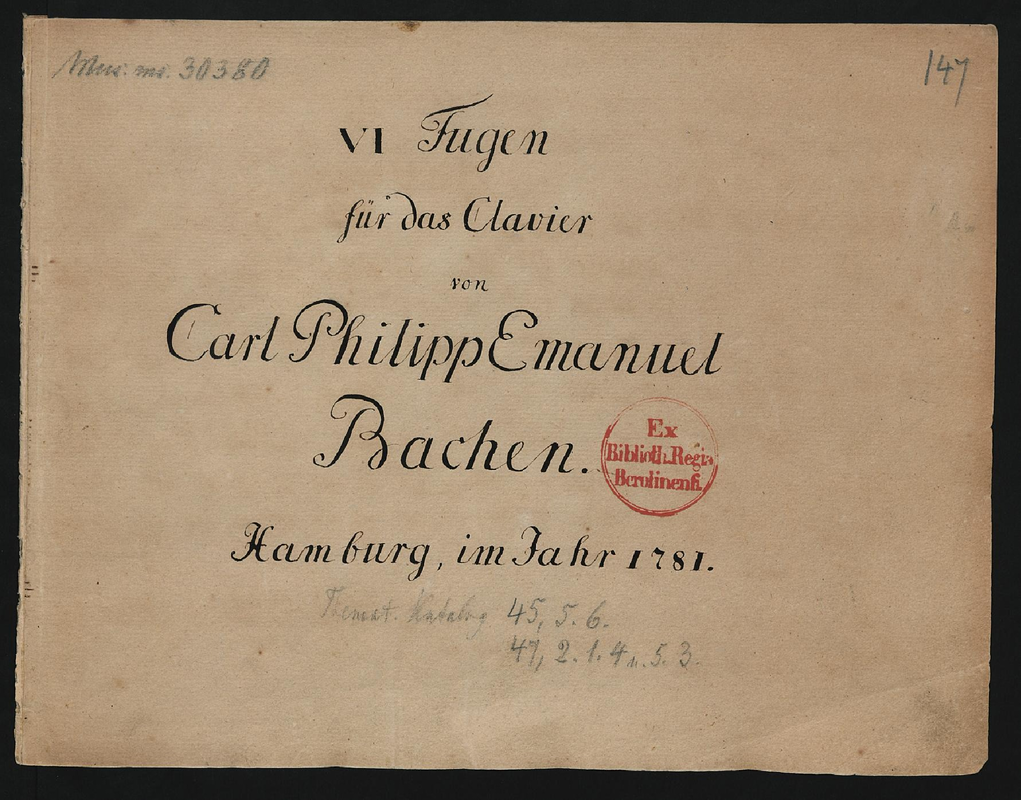 Mus. ms. 30380
147
VI Fugen
für das Clavier
von
Carl Philipp Emanuel
Bachen.
Ex
Biblioth. Regia
Berolinensi.
Hamburg, im Jahr 1781.
Themat. Katalog 45, 5. 6.
47, 2. 1. 4 u. 5. 3.